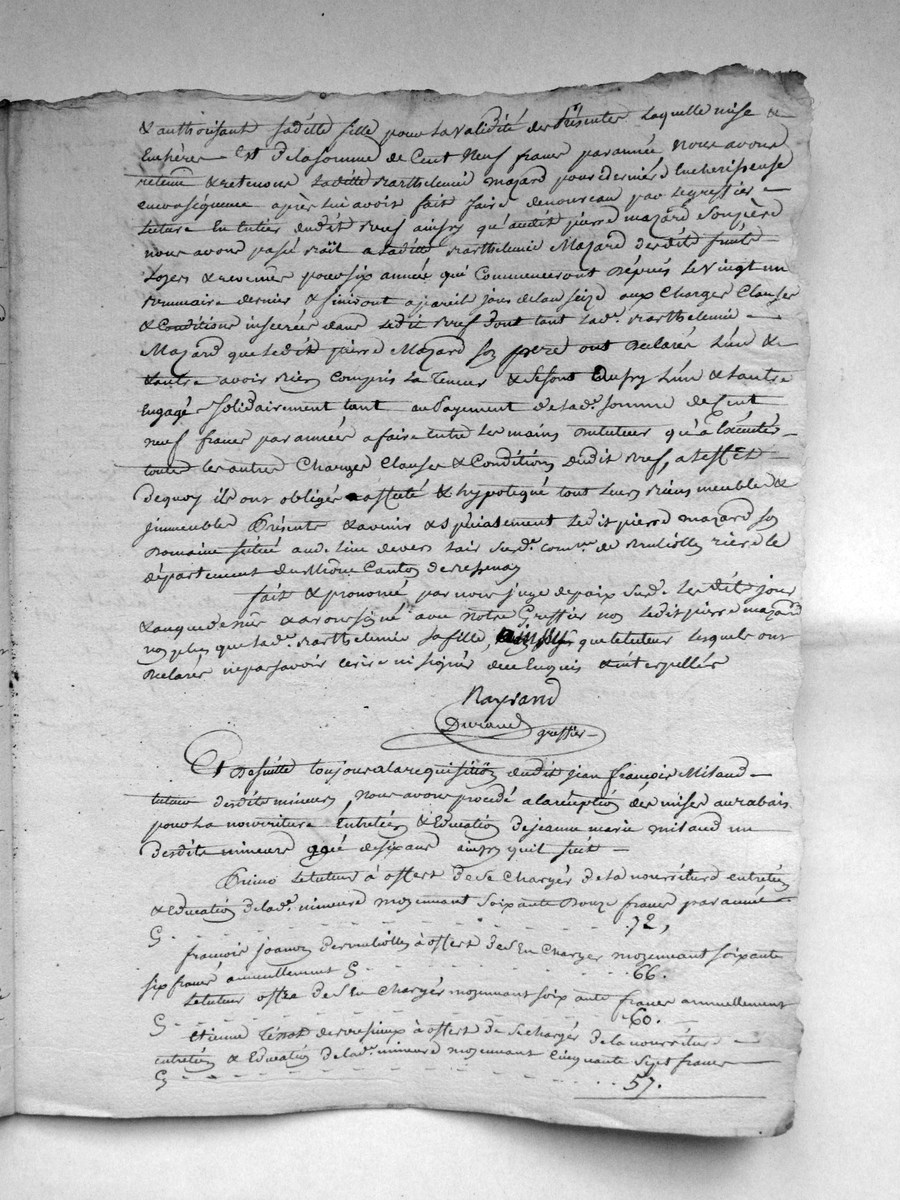 & authorisant sadite fille pour la validité des présentes laquelle mise &
Enchère Est de la somme de Cent Neuf francs par année Nous avons
retenu & retenons ladite Barthelemie mazard pour derniére Encherisseuse
en conséquence après lui avoir fait faire de nouveau par le greffier
lecture En Entier dudit Bref ainsy qu'audit pierre mazard Son père
nous avons passé Bail a ladite Barthelemie Mazard desdits fruits
Loyers & revenus pour six année qui Commenceront Depuis le vingt un
Brumaire dernier & finiront a pareil jour de l'an seize aux Charges Clauses
& Conditions inserées dans ledit Bref dont tant lad.e Barthelemie
Mazard que ledit pierre Mazard son père ont Déclarés L'un &
L'autre avoir Bien Compris la Teneur & se sont Ensfy L'un & L'autre
Engagé Solidairement tant au Payement de lad.e somme de Cent
neuf francs par année a faire Entre Les mains du tuteur qu'a
toutes les autres Charges Clauses & Conditions Dudit Bref, a l'effet
De quoy ils ont obligé affecté & hypotequé tout Leurs Biens meubles &
Jmmeubles Présents & avenir & Spécialement ledit pierre mazard son
Domaine situé au d. Lieu devers sur d.e com.ne de Brullioles riere le
département du Rhône Canton de Bessenay
fait & prononcé par nous juge de paix Sud.t les dit jour
& an que dessus & avons signé avec notre Greffier non ledit pierre mazard
non plus que lad.e Barthelemie sa fille, ainsy que le tuteur lesquels ont
Déclarés ne pas savoir écrire ni signer de ce Enquis & interpellés
Raynand
Durand greffier
Et De suitte toujours a la requisition dudit jean françois Milaud
tuteur desdits mineurs, Nous avons procédé a la réception des mises au rabais
pour La nourriture Entretien & Education de jeanne marie milaud un
desdits mineurs agée de six ans ainsy qu'il suit
Primo le tuteur à offert de se Charger de la nourriture entretien
& Education de lad.e mineure moyennant soixante Douze francs par année
Cy 72,
francois joannon de Brullioles à offert de s'En Charger moyennant soixante
six francs annuellement Cy 66.
Le tuteur offre de s'En Charger moyennant soixante francs annuellement
Cy 60.
Etienne de Bressieux à offert de se charger de la nourriture
entretien & Education de lad.e mineure moyennant Cinquante Sept francs
Cy 57.